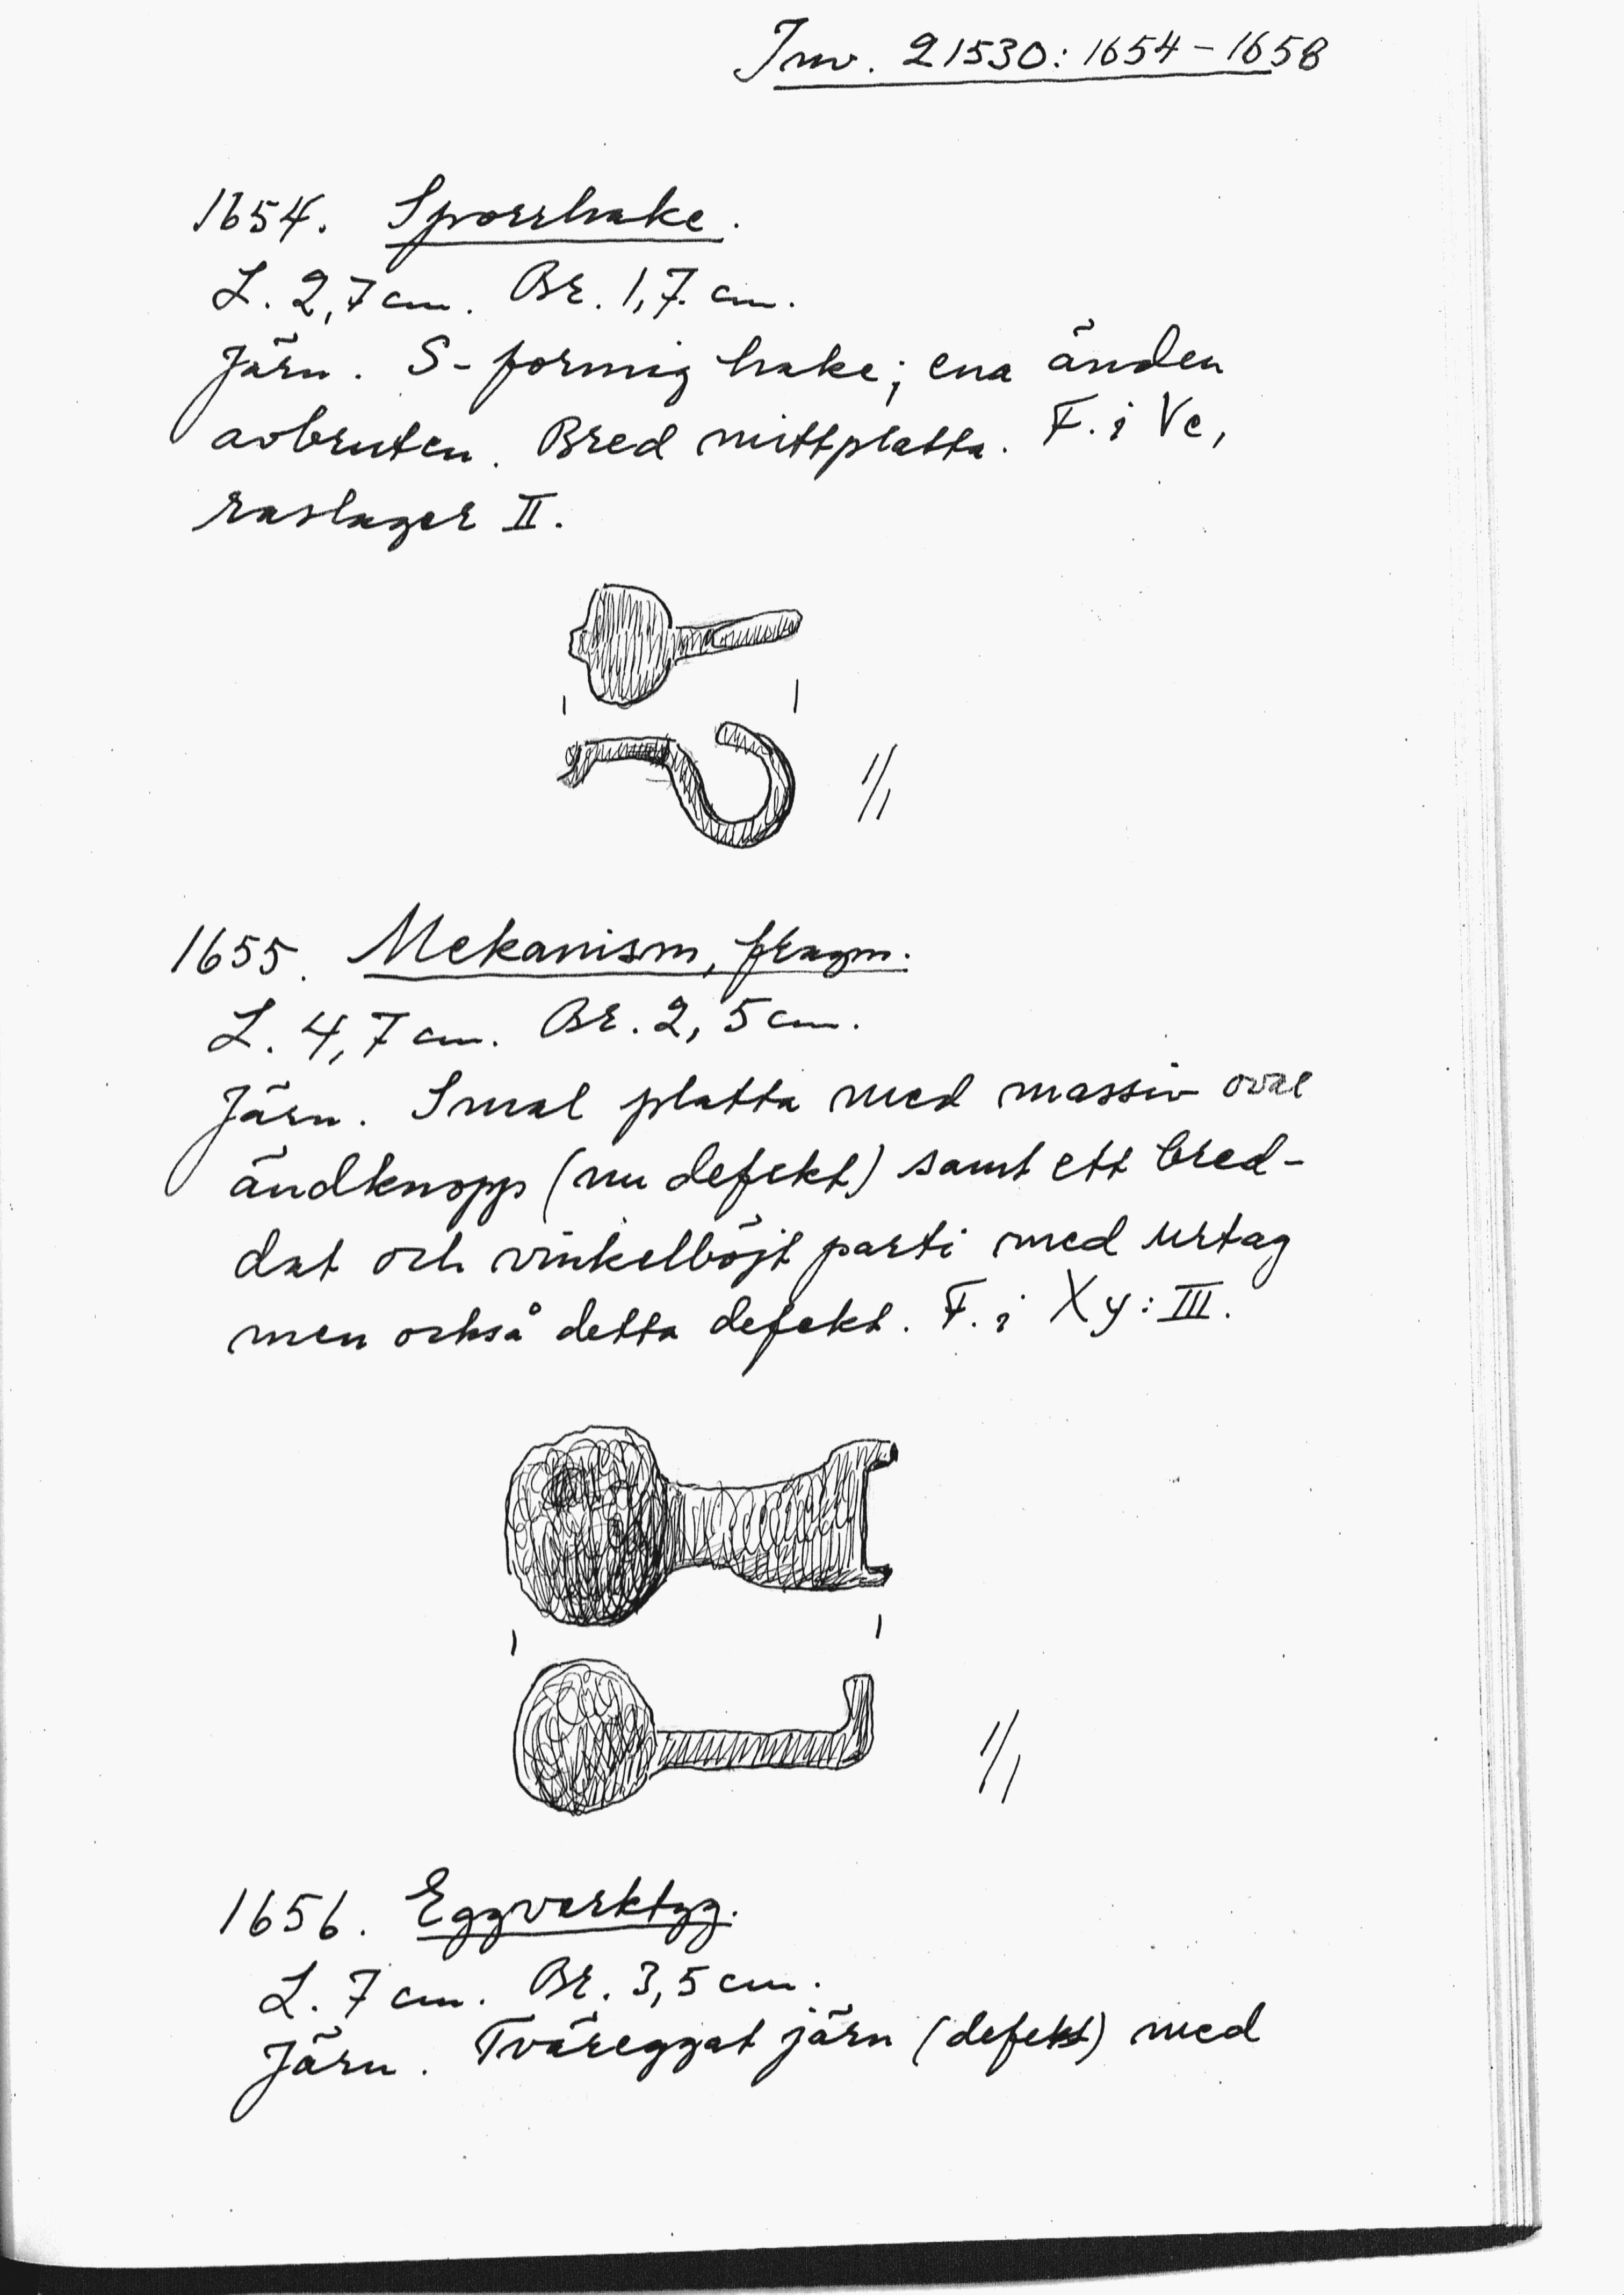 Inv. 21530: 1654-1658
1654. Sporrhake.
L. 2,7 cm. Br. 1,7 cm.
Järn. S-formig hake; ena änden
avbruten. Bred mittplatta. F. i Vc,
raslager II.
1/1
1655. Mekanism, fragm.
L. 4,7 cm. Br. 2,5 cm.
Järn. Smal platta med massiv oval
ändknopp (nu defekt) samt ett bred-
dat och vinkelböjt parti med urtag
men också detta defekt. F. i Xy: III.
1/1
1656. Eggverktyg.
L. 7 cm. Br. 3,5 cm.
Järn. Tväreggat järn (defekt) med